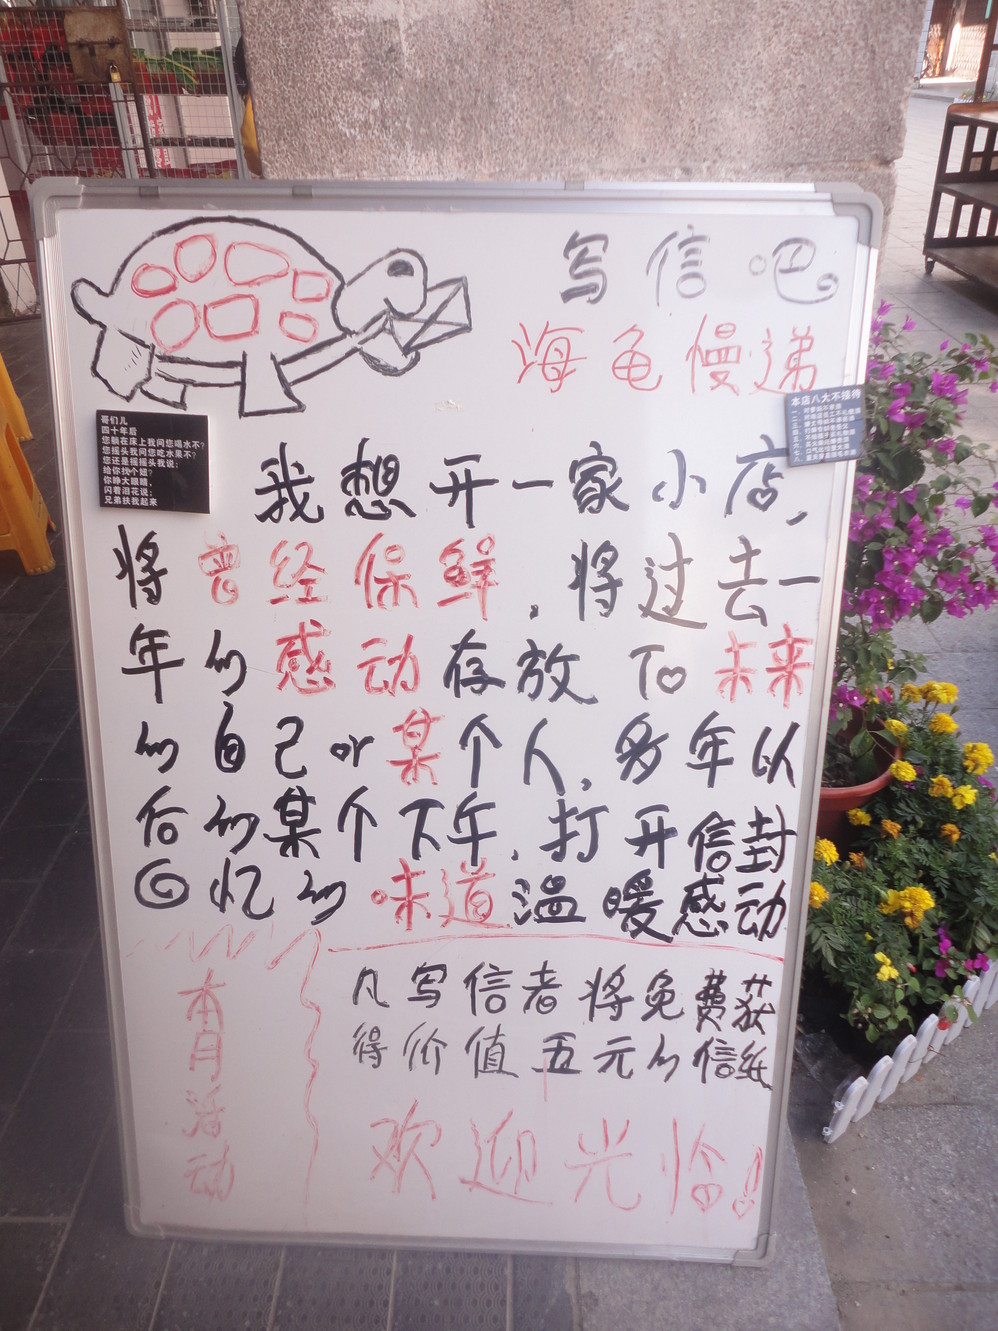 写信吧
海龟慢递
哥们儿
四十年后
您躺在床上我问您喝水不?
您摇头我问您吃水果不?
您还是摇摇头我说:
给你找个妞?
你睁大眼睛,
闪着泪花说:
兄弟扶我起来
本店八大不接待
我想开一家小店,
将曾经保鲜,将过去一
年的感动存放 To 未来
的自己 or 某个人,多年以
后的某个下午,打开信封
回忆的味道温暖感动
本月活动
凡写信者将免费获
得价值五元的信纸
欢迎光临!